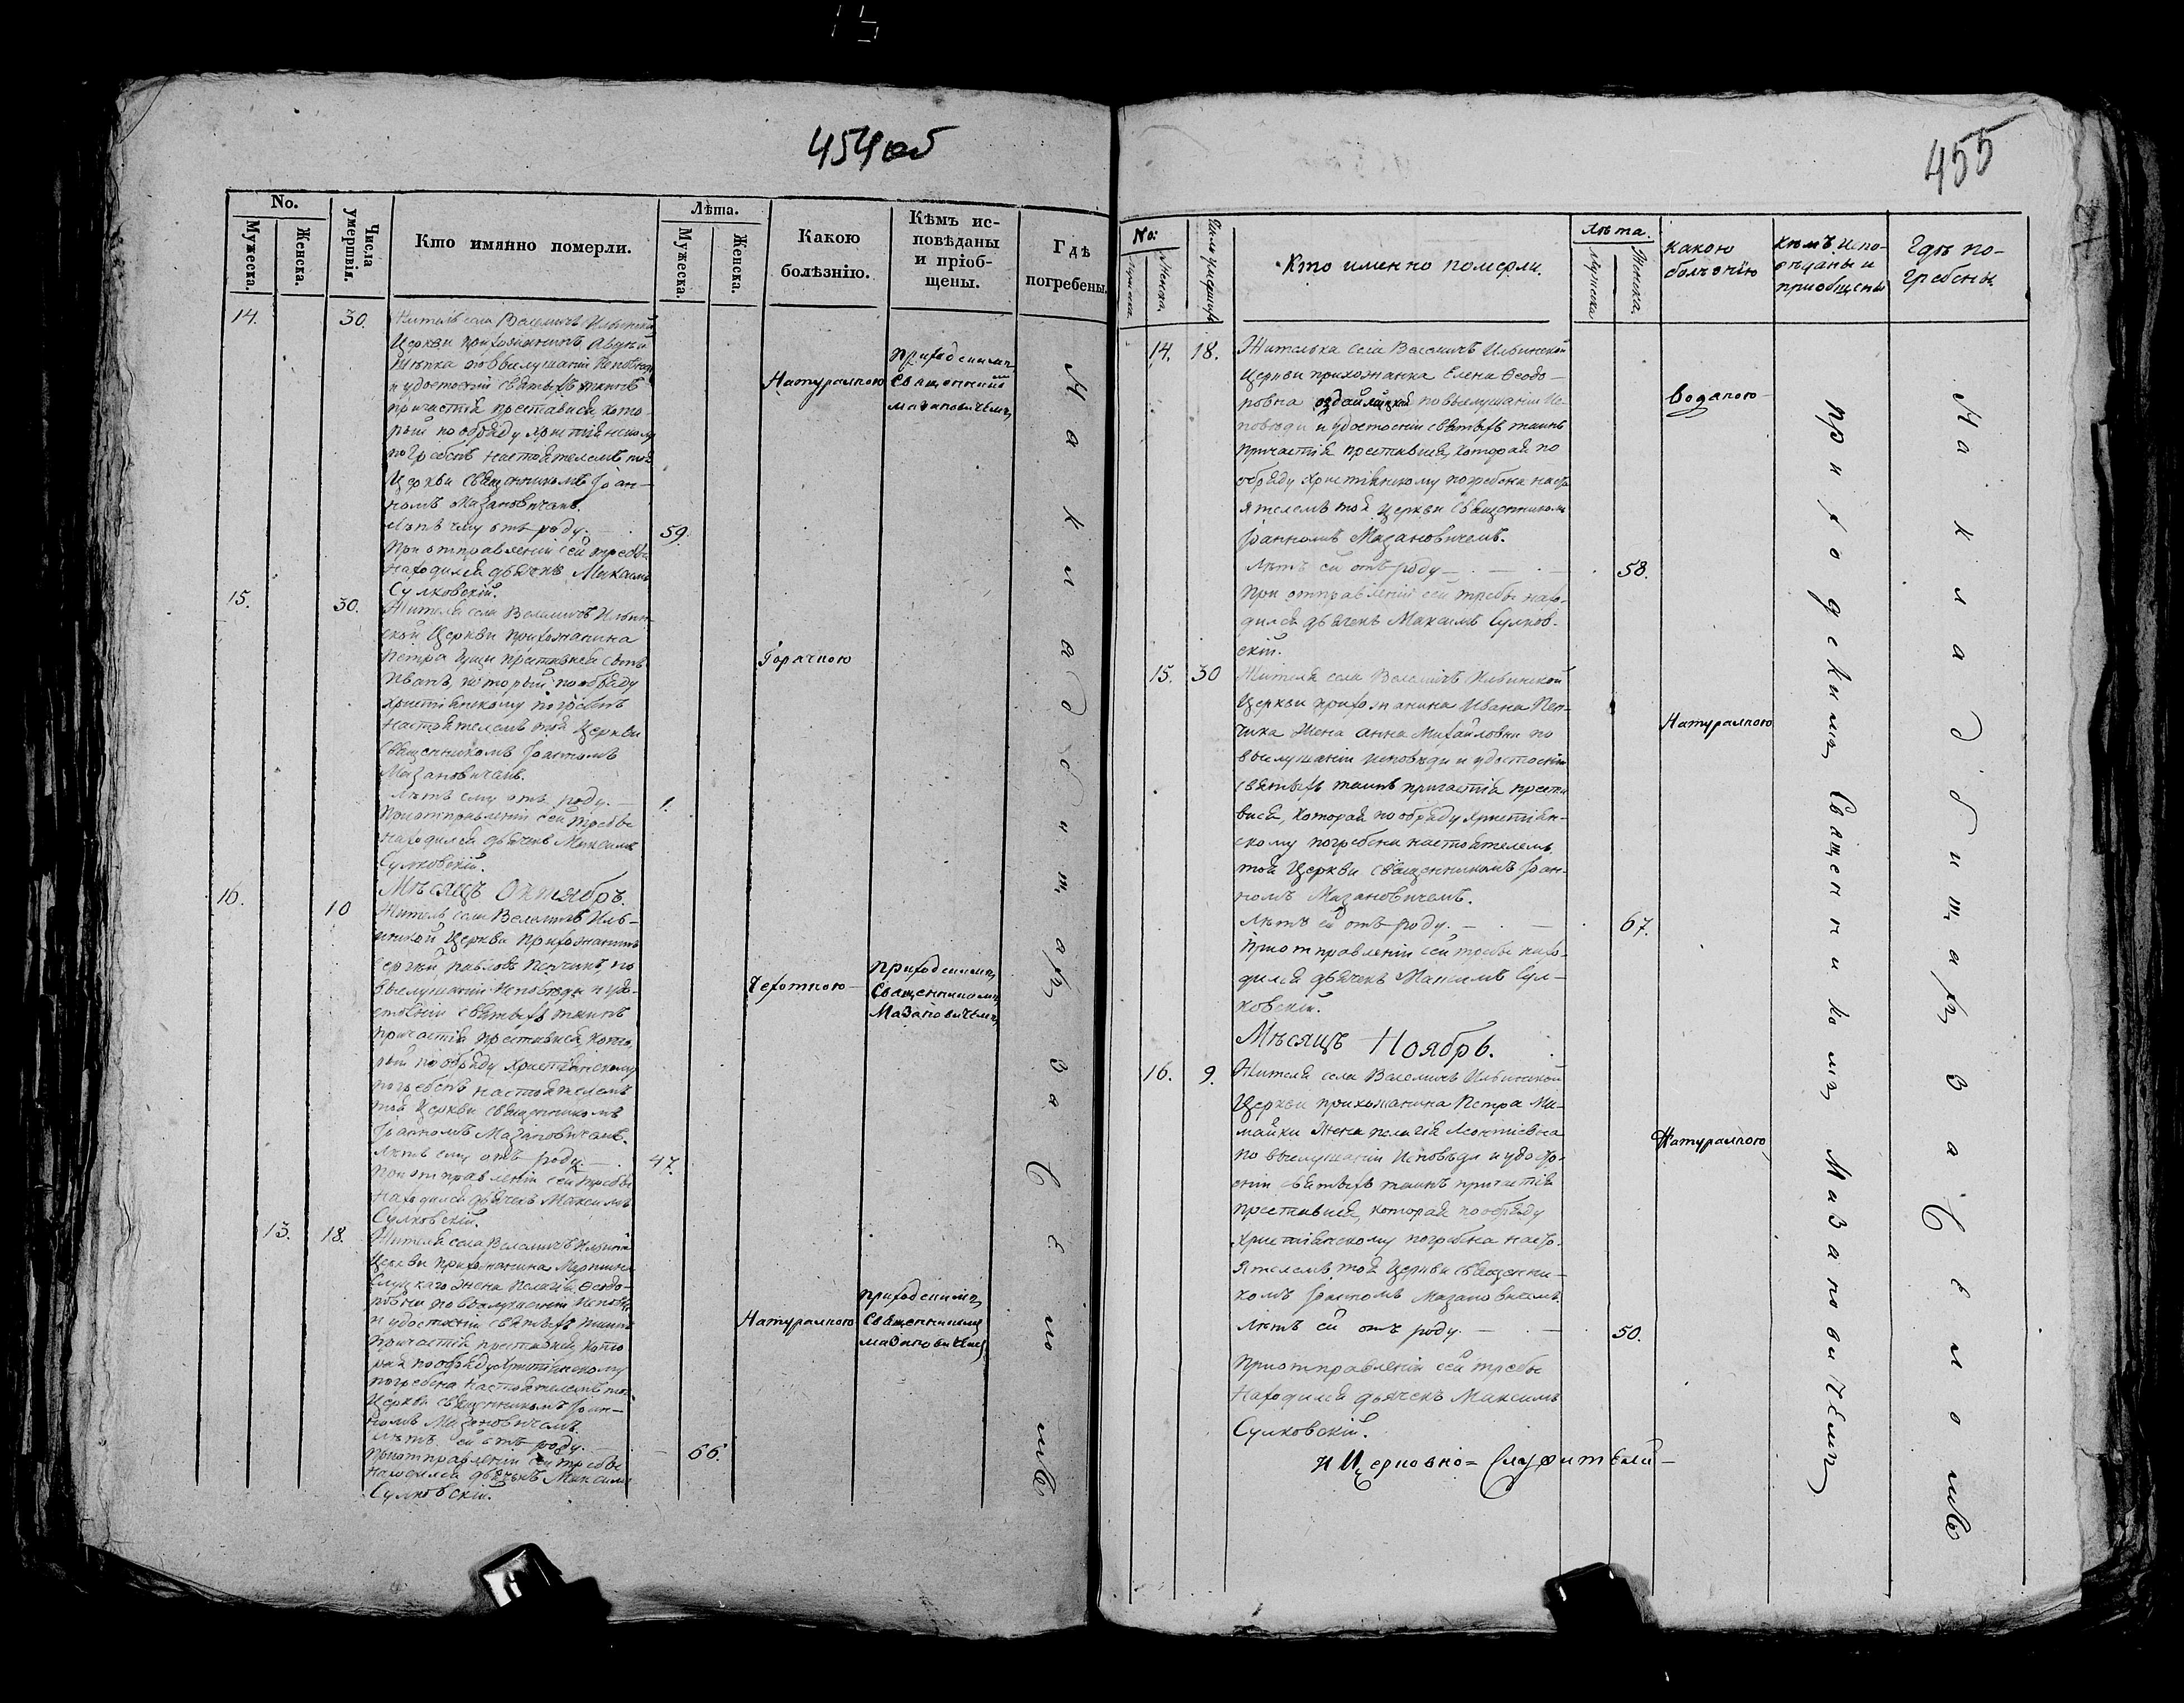 454 об
No.
Мужеска.
Женска.
Числа умершвія.
Кто имянно померли.
Лѣта.
Мужеска.
Женска.
Какою
болѣзнію.
Кѣмъ ис-
повѣданы
и пріоб-
щены.
Гдѣ
погребены.
14. 30.
Житель села Велемичъ Ильинской
Церкви прихожанинъ
по выслушаніи исповѣди
и удостоеніи святыхъ таинъ
причастія преставися кото-
рый по обряду христіянскому
погребенъ настоятелемъ той
Церкви священникомъ Іоан-
номъ Мазановичемъ.
Лѣтъ ему отъ роду. — 59.
При отправленіи сей требы
находился дьячекъ Максимъ
Сулковскій.
Натуралною
Приходскимъ
Священникомъ
Мазановичемъ
15. 30.
Жителя села Велемичъ Ильин-
ской Церкви прихожанина
Петра преставися сынъ
Иванъ, который по обряду
христіянскому погребенъ
настоятелемъ той Церкви
Священникомъ Іоанномъ
Мазановичемъ.
Лѣтъ ему отъ роду. — 1.
При отправленіи сей требы
находился дьячекъ Максимъ
Сулковскій.
Горячкою
Мѣсяцъ Октябрь.
16. 10
Житель села Велемичъ Иль-
инской Церкви прихожанинъ
Сергѣй Павловъ Пенчикъ, по
выслушаніи Исповѣди и удо-
стоеніи святыхъ таинъ
причастія преставися, кото-
рый по обряду Христіянскому
погребенъ настоятелемъ
той Церкви священникомъ
Іоанномъ Мазановичемъ.
Лѣтъ ему отъ роду — 47.
При отправленіи сей требы
находился дьячекъ Максимъ
Сулковскій.
Чехоткою
Приходскимъ
Священникомъ
Мазановичемъ
13. 18.
Жителя села Велемичъ Ильинской
Церкви прихожанина Мартина
Слуцкаго жена Пелагія Ѳеодо-
ровна по выслушаніи Исповѣди
и удостоеніи святыхъ таинъ
причастія преставися, кото-
рая по обряду Христіянскому
погребена настоятелемъ той
Церкви священникомъ Іоан-
номъ Мазановичемъ.
Лѣтъ ей отъ роду. — 66.
При отправленіи сей требы
находился дьячекъ Максимъ
Сулковскій.
Натуралною
Приходскимъ
Священникомъ
Мазановичемъ
На кладбищахъ За Селомъ
455
No:
Мужеска.
Женска.
Числа умершія
Кто именно померли.
Лѣта.
Мужеска
Женска.
Какою
болѣзнію
Кѣмъ испо-
вѣданы и
приобщены
Гдѣ по-
гребены.
14. 18.
Жителька села Велемичъ Ильинской
Церкви прихожанка Елена Ѳеодо-
ровна по выслушаніи Ис-
повѣди и удостоеніи святыхъ таинъ
причастія преставися, которая по
обряду Христіянскому погребена насто-
ятелемъ той Церкви Священникомъ
Іоанномъ Мазановичемъ.
Лѣтъ ей отъ роду — 58.
При отправленіи сей требы нахо-
дился дьячекъ Максимъ Сулков-
скій.
Водяною
15. 30
Жителя села Велемичъ Ильинской
Церкви прихожанина Ивана Пен-
чика Жена Анна Михайловна по
выслушаніи исповѣди и удостоеніи
святыхъ таинъ причастія преста-
вися, которая по обряду христіян-
скому погребена настоятелемъ
той Церкви священникомъ Іоан-
номъ Мазановичемъ.
Лѣтъ ей отъ роду. — 67.
При отправленіи сей требы нахо-
дился дьячекъ Максимъ Сул-
ковскій.
Натуралною
Мѣсяцъ Ноябрь.
16. 9.
Жителя села Велемичъ Ильинской
Церкви прихожанина Петра Ми-
майки Жена Пелагія Леонтіевна
по выслушаніи Исповѣди и удосто-
еніи святыхъ таинъ причастія
преставися, которая по обряду
Христіянскому погребена насто-
ятелемъ той Церкви священни-
комъ Іоанномъ Мазановичемъ.
Лѣтъ ей отъ роду. — 50.
При отправленіи сей требы
находился дьячекъ Максимъ
Сулковскій.
Натуралною
Приходскимъ Священникомъ Мазановичемъ
На кладбищахъ За Селомъ
и Церковно=Служители—